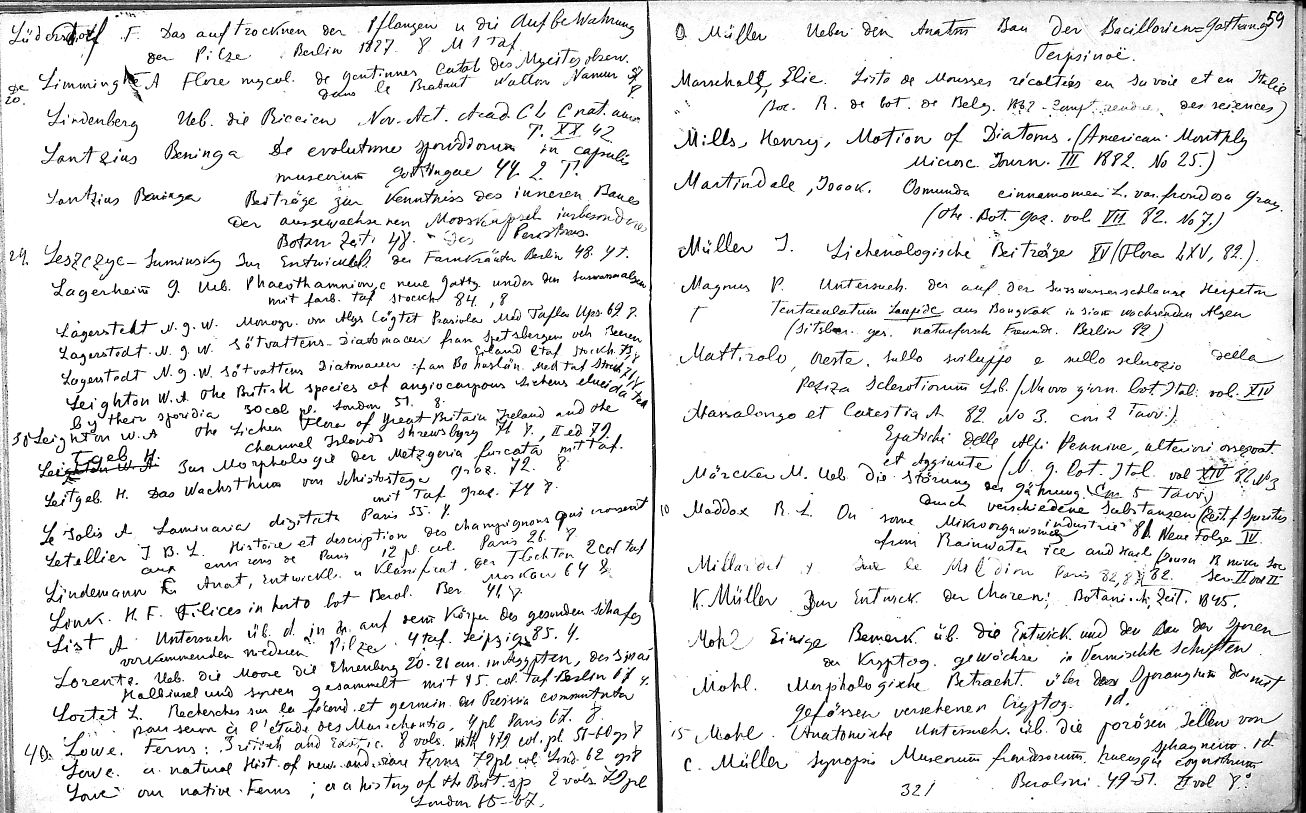 Lüdersdorf F. Das auftrocknen der Pflanzen u die Aufbewahrung
der Pilze. Berlin 1827. 8 M 1 Taf
de
20. Limminghe A Flore mycol. de Catal des Mycetes observ.
dans le Brabant Wallon Namur 57 8.
Lindenberg Ueb. die Riccien Nov. Act. Acad C L C nat. cur
T. XX 42
Lantzius Beninga De evolutione sporidiorum in capsulis
muscorum Gottingae 44. 2 T.
Lantzius Beninga Beiträge zur Kenntniss des inneren Baues
der ausgewachsenen Mooskapsel insbesondere
Botan Zeit. 47. des Peristoms.
29. Leszczyc-Suminsky Zur Entwickel. der Farnkräuter Berlin 48. 4T.
Lagerheim G. Ueb. Phaeothamnion, e neue Gattg. unter den Susswasseralgen
mit farb. taf Stockh 84. 8
Lagerstedt N. G. W. Monogr. om Alg Prasiola Med Tafla Ups. 69 8.
Lagerstedt N. G. W. Sötvattens-Diatomaceer fran Spetsbergen och Beeren
Eiland 2 taf Stockh. 73, 8
Lagerstedt N. G. W. Sötvattens Diatomaceer fran Bohuslän. Med taf Stockh
Leighton W. A The British species of angiocarpous Lichens elucidated
by their sporidia 30 col pl. London 51. 8.
30 Leighton W. A The Lichen Flora of Great Britain Ireland and the
Channel Islands Shrewsbury 71 8., II ed 79
Leitgeb H. Zur Morphologie der Metzgeria furcata mit Taf.
Graz. 72. 8
Leitgeb. H. Das Wachsthum von Schistostega
mit Taf Graz. 74 8.
Le Jolis A Laminaria digitata Paris 55. 4.
Letellier J. B. L. Histoire et description des champignons qui croissent
aux environs de Paris 12 pl. col. Paris 26. 8
Lindemann E. Anat, Entwickl. u Klassificat. der Flechten 2 col taf
Moskau 64 8.
Link. H. F. Filices in horto bot Berol. Ber. 41 8
List A. Untersuch üb. d. in u. auf dem Körper des gesunden Schafes
vorkommenden niederen Pilze. 4 taf. Leipzig 85. 4.
Lorentz. Ueb. die Moose die Ehrenberg 20-21 an. in Aegypten, der Sinai
Halbinsel und Syrien gesammelt mit 15. col. taf Berlin 67 4.
Lortet L. Recherches sur la fécond. et germin. du Preissia commutata
pour servir à l'étude des Marchantia, 4 pl Paris 67. 8
40. Lowe. Ferns: British and Exotic. 8 vols. with 479 col. pl. 51-60 gr 8
Lowe. a natural Hist of new and rare ferns 72 pl col Lond. 62 gr 8
Lowe our native Ferns; or a history of the Brit. sp 2 vols 79 pl
London 65-67.
59
O Müller Ueber den Anatom Bau der Bacillarien-Gattung
Terpsinoë.
Marschall, Elie. Liste de Mousses récoltées en Savoie et en Italie
(Soc. R. de bot. de Belg. 1882 - Compt. rendu des sciences)
Mills, Henry, Motion of Diatoms. (American Monthly
Microsc Journ. III 1882. No 25.)
Martindale, Isaak. Osmunda cinnamomea L. var. frondosa Gray.
(the. Bot. gaz. vol VII 82. No 7.)
Müller J. Lichenologische Beiträge XV (Flora LXV, 82.).
Magnus P. Untersuch. der auf der Susswasserschlange Herpeton
Tentaculatum Lacépède aus Bangkok in Siam wachsenden Algen
(Sitzber. ges. naturforsch Freunde. Berlin 82)
Mattirolo, Oreste, sullo sviluppo e sullo sclerozio della
Peziza Sclerotiorum Lib. (Nuovo giorn. bot. Ital. vol. XIV
82 No 3. con 2 Tavv.).
Massalongo et Carestia A
Epatiche delle Alpi Pennine, ulteriori osservat.
et Aggiunte (N. g. bot. Ital. vol XIV 82 No 3
con 5 Tavv.)
Märcker M. Ueb die Störung der Gährung
durch verschiedene Substanzen (Zeit f Spiritus-
industrie 81 Neue Folge IV.
10 Maddox R. L. On some Mikroorganisms
from Rainwater ice and Hail (Journ R micr Soc
82. Ser. II vol II
Millardet Sur le Mildiou Paris 82, 8
K. Müller Zur Entwick. der Charen; Botanisch. Zeit. 1845.
Mohl Einige Bemerk üb. die Entwick und den Bau der Sporen
der Kryptog. gewächse in Vermischte Schriften.
Mohl. Morphologische Betracht. über das Sporangium der mit
gefässen versehenen Cryptog. id.
15 Mohl. Anatomische Untersuch. üb. die porösen Zellen von
Sphagnum. id
C. Müller Synopsis Muscorum frondosorum hucusque cognitorum
Berolini. 49-51. II vol 8.
321